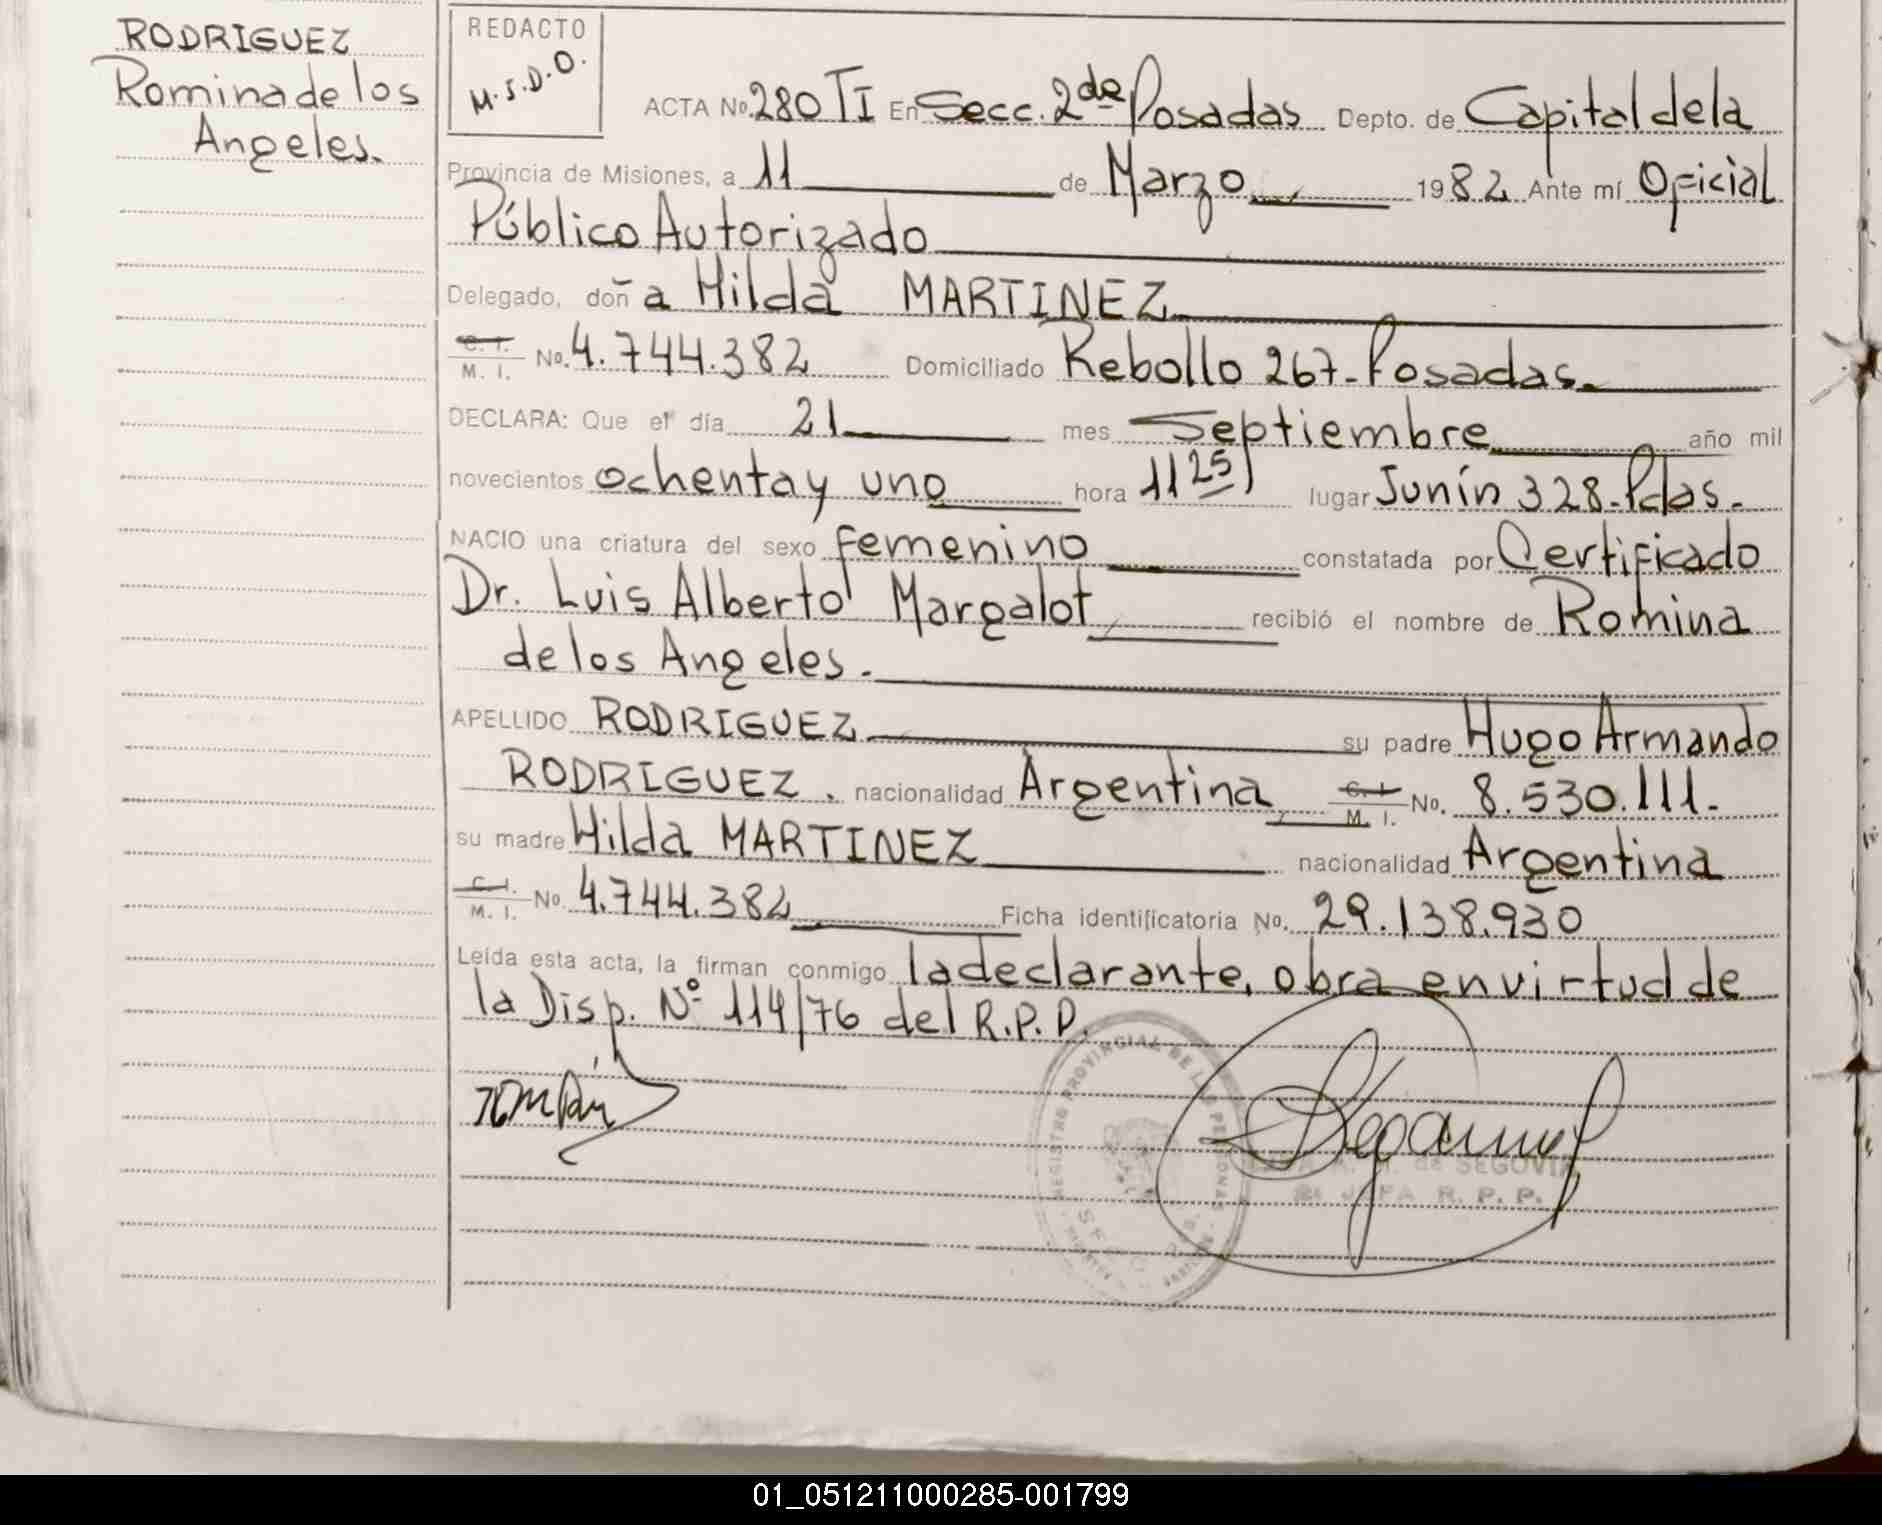 RODRIGUEZ
Romina de los
Angeles.
REDACTO
M.S.D.O.
ACTA No. 280 TI En Secc. 2da Posadas Depto. de Capital de la
Provincia de Misiones, a 11 de Marzo 1982 Ante mí Oficial
Público Autorizado
Delegado, doña Hilda MARTINEZ
C. I. M. I. No. 4.744.382 Domiciliado Rebollo 267-Posadas.
DECLARA: Que el día 21 mes Septiembre año mil
novecientos ochenta y uno hora 11 25 lugar Junín 328-Pdas.
NACIO una criatura del sexo femenino constatada por Certificado
Dr. Luis Alberto Margalot recibió el nombre de Romina
de los Angeles.
APELLIDO RODRIGUEZ su padre Hugo Armando
RODRIGUEZ. nacionalidad Argentina C. I. M. I. No. 8.530.111.
su madre Hilda MARTINEZ nacionalidad Argentina
C. I. M. I. No. 4.744.382 Ficha identificatoria No. 29.138.930
Leída esta acta, la firman conmigo la declarante, obra en virtud de
la Disp. Nº 114/76 del R.P.P.
REGISTRO PROVINCIAL DE LAS PERSONAS
de SEGOVIA
JEFA R. P. P.
01_051211000285-001799